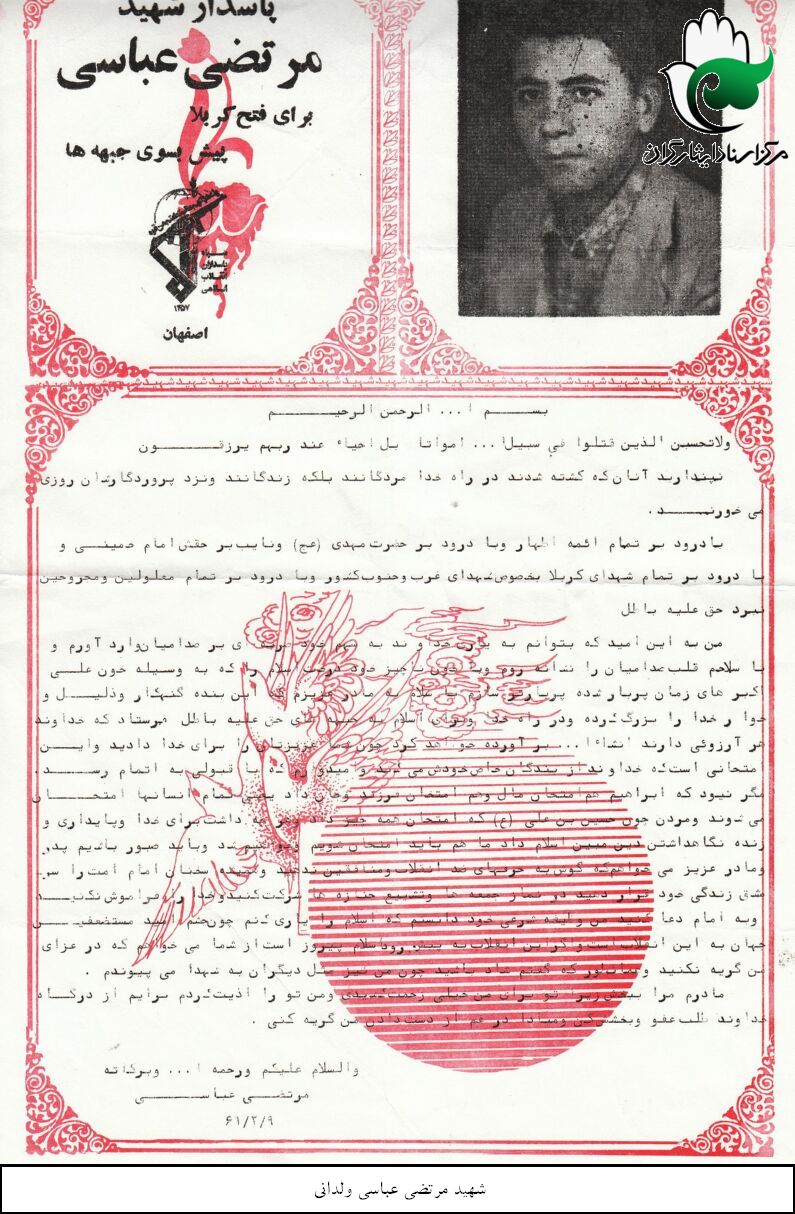 پاسدار شهید
مرتضی عباسی
برای فتح کربلا
پیش بسوی جبهه ها
سپاه
پاسداران
انقلاب
اسلامی
۱۳۵۷
اصفهان
مرکز اسناد ایثارگران
بسم ا... الرحمن الرحیم
ولاتحسبن الذین قتلوا في سبیل ا... امواتا بل احیاء عند ربهم یرزقون
نپندارید آنان که کشته شدند در راه خدا مردگانند بلکه زندگانند ونزد پروردگارشان روزی
می خورند .
بادرود بر تمام ائمه اطهار وبا درود بر حضرت مهدی (عج) ونایب بر حقش امام خمینی و
با درود بر تمام شهدای کربلا بخصوص شهدای غرب وجنوب کشور وبا درود بر تمام معلولین ومجروحین
نبرد حق علیه باطل
من به این امید که بتوانم به یاری خداوند به سهم خود ضربه ای بر صدامیان وارد آورم و
با سلاحم قلب صدامیان را نشانه روم وبا خون ناچیز خود درخت اسلام را که به وسیله خون علی
اکبر های زمان پربار شده پربارتر سازم با سلام به مادر عزیزم که این بنده گنهکار وذلیل و
خوار خدا را بزرگ کرده ودر راه خدا وبرای اسلام به جبهه های حق علیه باطل میرستاد که خداوند
هر آرزوئی دارند انشاءا... بر آورده خواهد کرد چون شما عزیزتان را برای خدا دادید واین
امتحانی است که خداوند از بندگان خاص خودش می کند و میدوارم که با قبولی به اتمام رسد .
مگر نبود که ابراهیم هم امتحان مال وهم امتحان فرزند وجان داد یعنی تمام انسانها امتحان
می شوند ومردن چون حسین بن علی (ع) که امتحان همه چیز داد وهر چه داشت برای خدا وپایداری و
زنده نگاهداشتن دین مبین اسلام داد ما هم باید امتحان شویم وباید صبور باشیم پدر
ومادر عزیز می خواهم که گوس به حرفهای ضد انقلاب ومنافقین ندهید وهمیشه سخنان امام امت را سر
مشق زندگی خود قرار دهید در نماز جمعه ها وتشییع جنازه ها شرکت کنید وخدا را فراموش نکنید
وبه امام دعا کنید من وظیفه شرعی خود دانستم که اسلام را یاری کنم چون چشم امید مستضعفین
جهان به این انقلاب است و این انقلاب به پیش رود اسلام پیروز است از شما می خواهم که در عزای
من گریه نکنید وهمانطور که گفتم شاد باشید چون من نیز مثل دیگران به شهدا می پیوندم .
مادرم مرا ببخش زیرا تو برای من خیلی زحمت کشیدی ومن تو را اذیت کردم برایم از درگاه
خداوند طلب عفو وبخشش کن ومبادا در غم از دست دادن من گریه کنی .
والسلام علیکم ورحمه ا... وبرکاته
مرتضی عباسی
۶۱/۲/۹
شهید مرتضی عباسی ولدانی